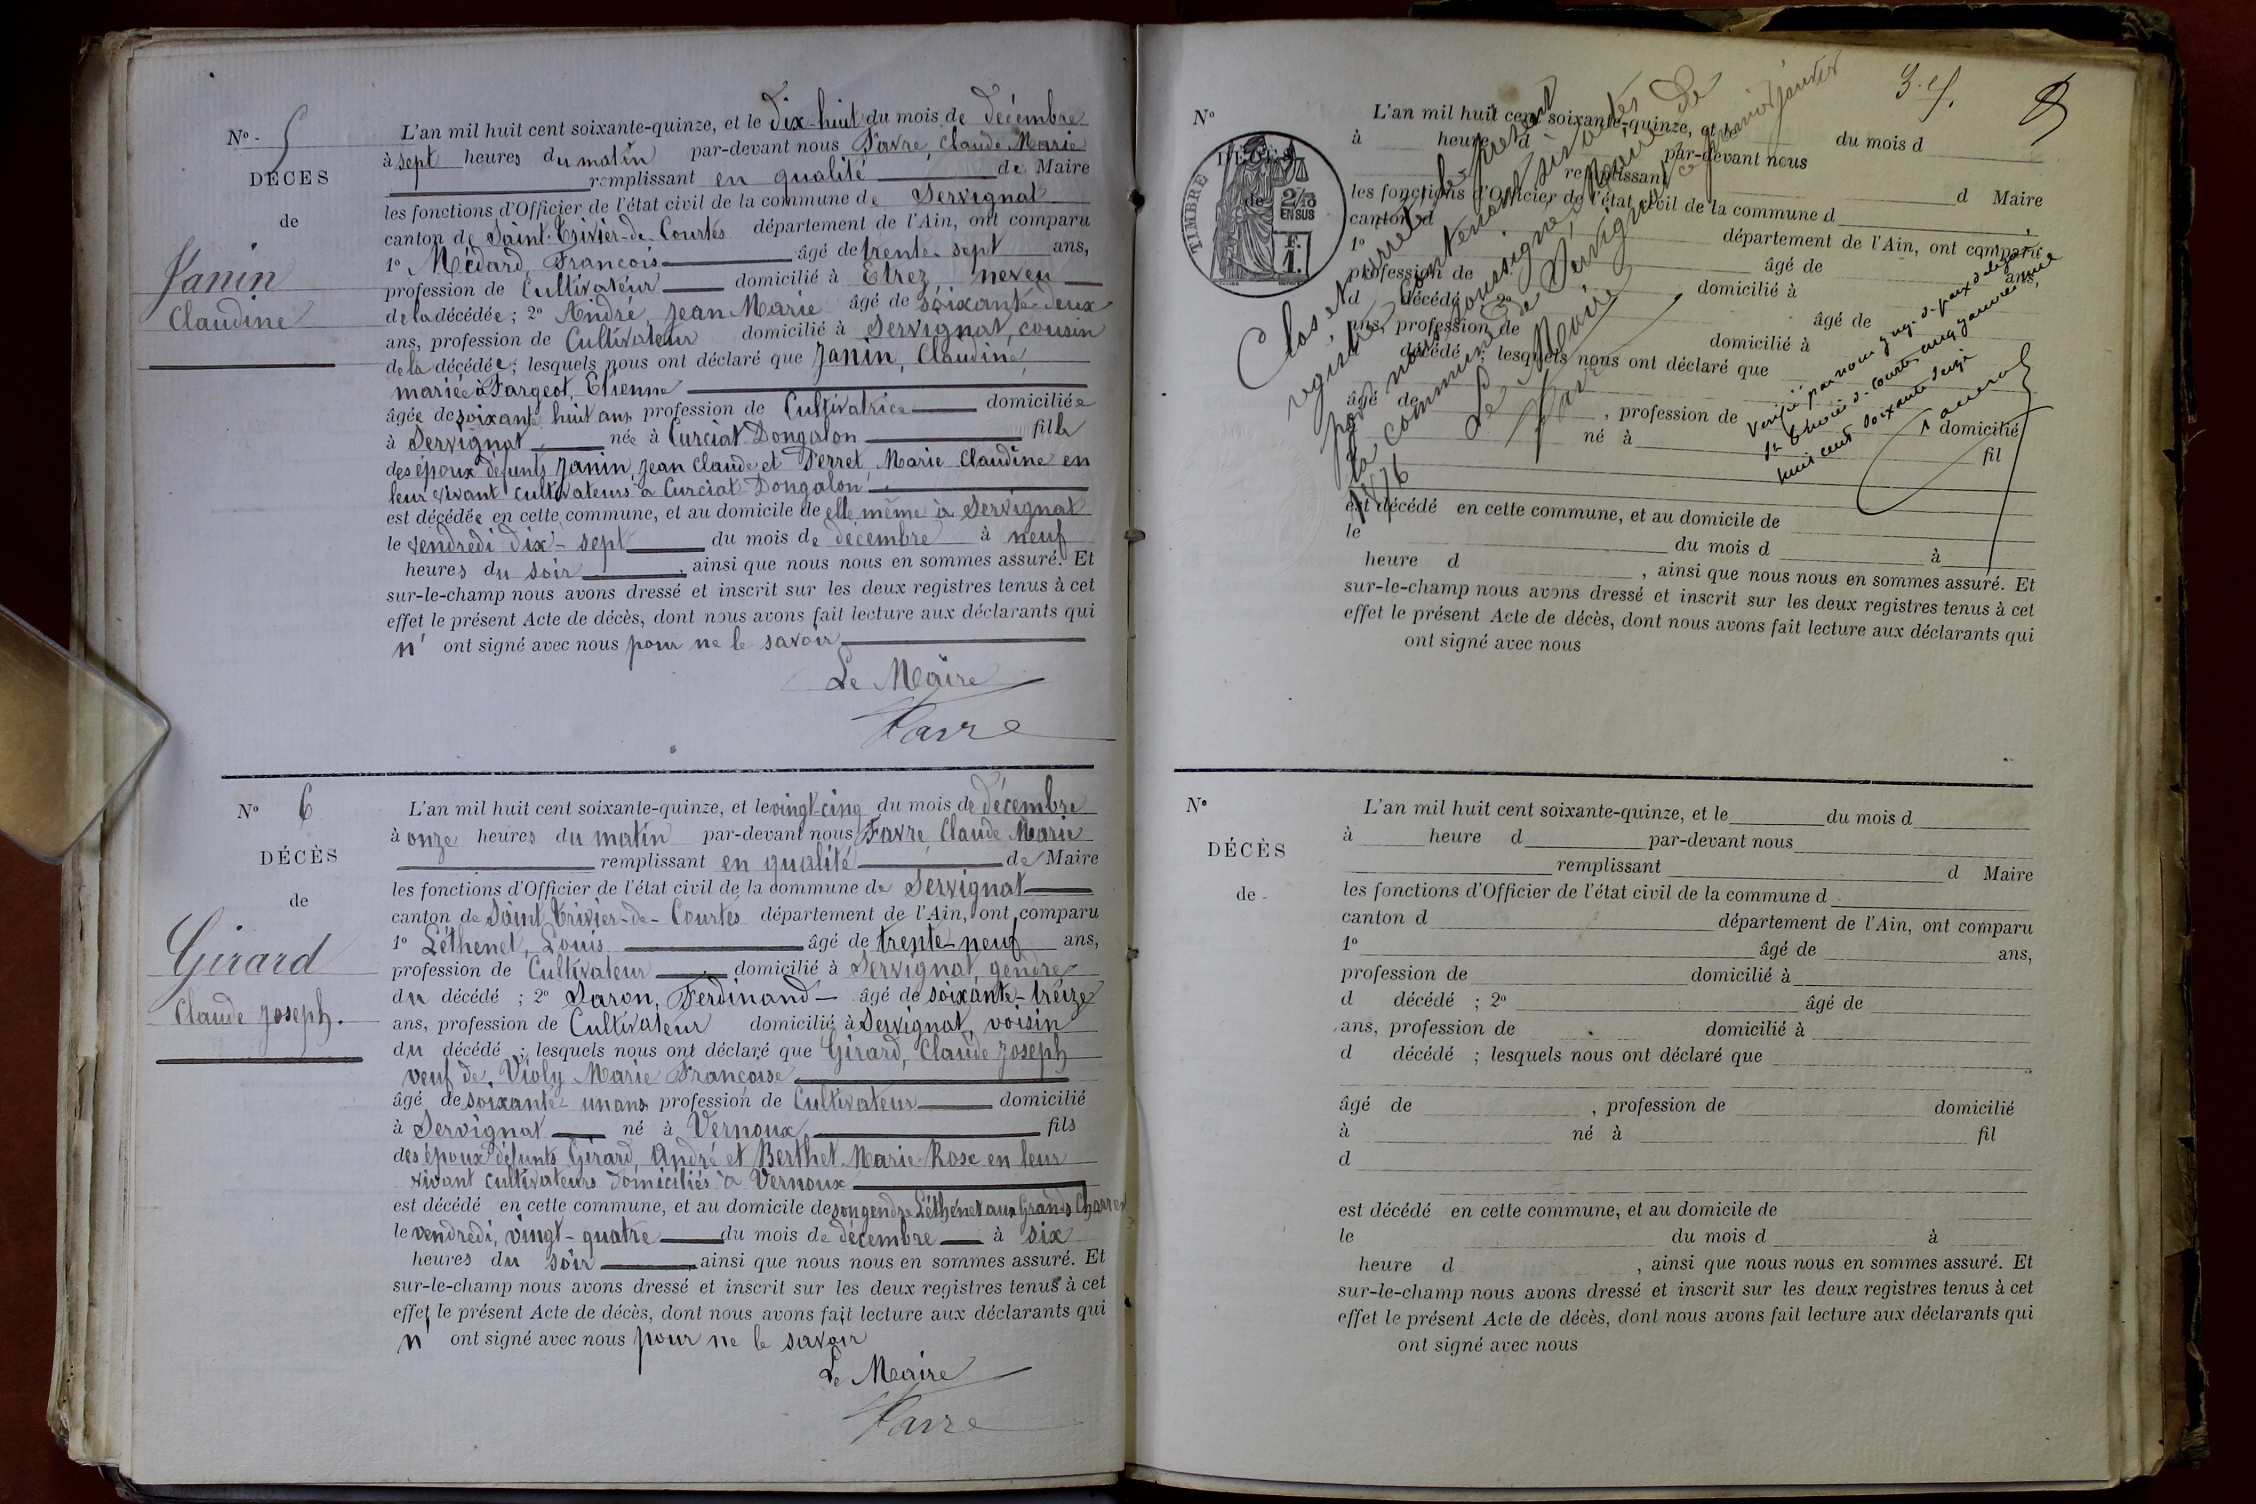 N° - 5
DÉCÈS
de
Janin
Claudine
L'an mil huit cent soixante-quinze, et le dix-huit du mois de décembre
à sept heures du matin par-devant nous Favre, Claude Marie
remplissant en qualité de Maire
les fonctions d'Officier de l'état civil de la commune de Servignat
canton de Saint-Trivier-de-Courtes département de l'Ain, ont comparu
1° Médard, François âgé de trente-sept ans,
profession de Cultivateur domicilié à Etrez, neveu
de la décédée ; 2° André, Jean Marie âgé de soixante-deux
ans, profession de Cultivateur domicilié à Servignat, cousin
de la décédée ; lesquels nous ont déclaré que Janin, Claudine,
mariée à Fargeot, Etienne
âgée de soixante huit ans profession de Cultivatrice domiciliée
à Servignat née à Curciat Dongalon fille
des époux défunts Janin, Jean Claude et Perret, Marie Claudine en
leur vivant cultivateurs à Curciat-Dongalon
est décédée en cette commune, et au domicile de elle même à Servignat
le vendredi dix-sept du mois de décembre à neuf
heures du soir, ainsi que nous nous en sommes assuré. Et
sur-le-champ nous avons dressé et inscrit sur les deux registres tenus à cet
effet le présent Acte de décès, dont nous avons fait lecture aux déclarants qui
n' ont signé avec nous pour ne le savoir
Le Maire
Favre
N° 6
DÉCÈS
de
Girard
Claude Joseph.
L'an mil huit cent soixante-quinze, et le vingt-cinq du mois de décembre
à onze heures du matin par-devant nous Favre, Claude Marie
remplissant en qualité de Maire
les fonctions d'Officier de l'état civil de la commune de Servignat
canton de Saint-Trivier-de-Courtes département de l'Ain, ont comparu
1° Léthenet, Louis âgé de trente-neuf ans,
profession de Cultivateur domicilié à Servignat, gendre
du décédé ; 2° Daron, Ferdinand âgé de soixante-treize
ans, profession de Cultivateur domicilié à Servignat, voisin
du décédé ; lesquels nous ont déclaré que Girard, Claude Joseph
veuf de Violy Marie Françoise
âgé de soixante-un ans profession de Cultivateur domicilié
à Servignat né à Vernoux fils
des époux défunts Girard, André et Berthet Marie-Rose en leur
vivant cultivateurs domiciliés à Vernoux
est décédé en cette commune, et au domicile de son gendre Léthenet aux Grands
le vendredi, vingt-quatre du mois de décembre à six
heures du soir, ainsi que nous nous en sommes assuré. Et
sur-le-champ nous avons dressé et inscrit sur les deux registres tenus à cet
effet le présent Acte de décès, dont nous avons fait lecture aux déclarants qui
n' ont signé avec nous pour ne le savoir
Le Maire
Favre
N°
DÉCÈS
de
TIMBRE
2/10
EN SUS
F.
1.
L'an mil huit cent soixante-quinze, et le du mois d
à heure d par-devant nous
remplissant d Maire
les fonctions d'Officier de l'état civil de la commune d
canton d département de l'Ain, ont comparu
1° âgé de ans,
profession de domicilié à
d décédé ; 2° âgé de
ans, profession de domicilié à
d décédé ; lesquels nous ont déclaré que
âgé de , profession de domicilié
né à fil
est décédé en cette commune, et au domicile de
le du mois d à
heure d , ainsi que nous nous en sommes assuré. Et
sur-le-champ nous avons dressé et inscrit sur les deux registres tenus à cet
effet le présent Acte de décès, dont nous avons fait lecture aux déclarants qui
ont signé avec nous
Clos et arrêté le présent
registre contenant six actes
par nous soussigné, Maire de
la commune de Servignat ce janvier
1876
Le Maire
Favre
Vérifié par nous juge de paix
St Trivier de Courtes cinq janvier mil
huit cent soixante seize
N°
DÉCÈS
de
L'an mil huit cent soixante-quinze, et le du mois d
à heure d par-devant nous
remplissant d Maire
les fonctions d'Officier de l'état civil de la commune d
canton d département de l'Ain, ont comparu
1° âgé de ans,
profession de domicilié à
d décédé ; 2° âgé de
ans, profession de domicilié à
d décédé ; lesquels nous ont déclaré que
âgé de , profession de domicilié
à né à fil
d
est décédé en cette commune, et au domicile de
le du mois d à
heure d , ainsi que nous nous en sommes assuré. Et
sur-le-champ nous avons dressé et inscrit sur les deux registres tenus à cet
effet le présent Acte de décès, dont nous avons fait lecture aux déclarants qui
ont signé avec nous